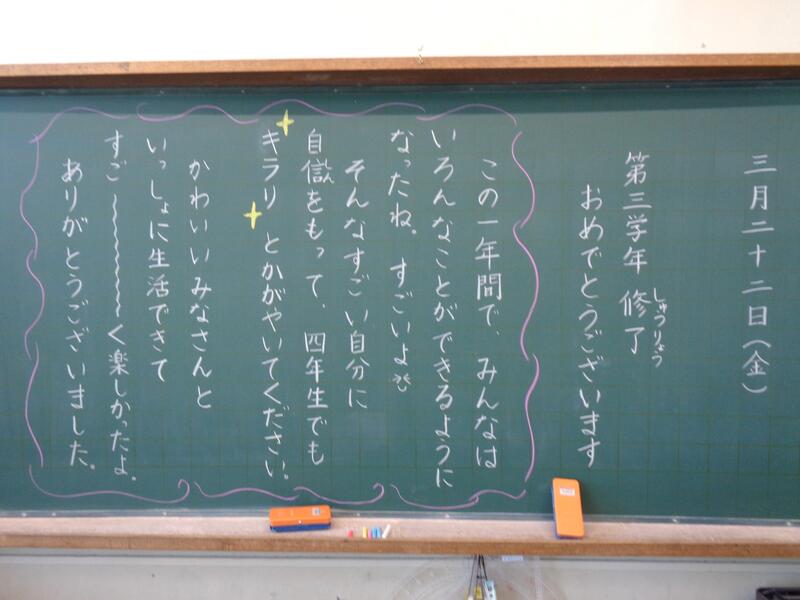 三月二十二日(金)
第三学年 修了
しゅうりょう
おめでとうございます
この一年間で、みんなは
いろんなことができるように
なったね。すごいよ
そんなすごい自分に
自信をもって、四年生でも
じしん
キラリ とかがやいてください。
かわいいみなさんと
いっしょに生活できて
すご〜〜〜〜〜く楽しかったよ。
ありがとうございました。